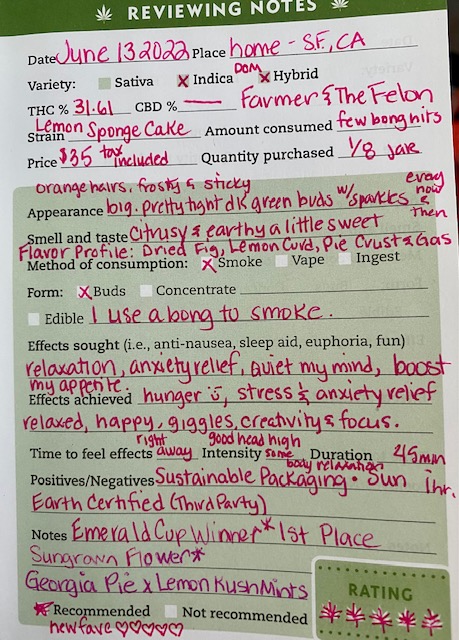 REVIEWING NOTES
Date June 13 2022 Place home - S.F., CA
Variety: Sativa X Indica Dom X Hybrid
THC % 31.61 CBD % — Farmer & The Felon
Strain Lemon Sponge Cake Amount consumed few bong hits
Price $35 tax included Quantity purchased 1/8 jar
orange hairs, frosty & sticky
Appearance big, pretty tight dk green buds w/ sparkles every now & then
Smell and taste Citrusy & earthy a little sweet
Flavor Profile: Dried Fig, Lemon Curd, Pie Crust & Gas
Method of consumption: X Smoke Vape Ingest
Form: X Buds Concentrate
Edible I use a bong to smoke.
Effects sought (i.e., anti-nausea, sleep aid, euphoria, fun)
relaxation, anxiety relief, quiet my mind, boost
my appetite.
Effects achieved hunger, stress & anxiety relief
relaxed, happy, giggles, creativity & focus.
Time to feel effects right away Intensity good head high some body relaxation Duration 45 min
Positives/Negatives Sustainable Packaging • Sun 1 hr.
Earth Certified (Third Party)
Notes Emerald Cup Winner* 1st Place
Sungrown Flower*
Georgia Pie x Lemon Kush Mints
RATING
Recommended Not recommended
new fave ♡♡♡♡♡